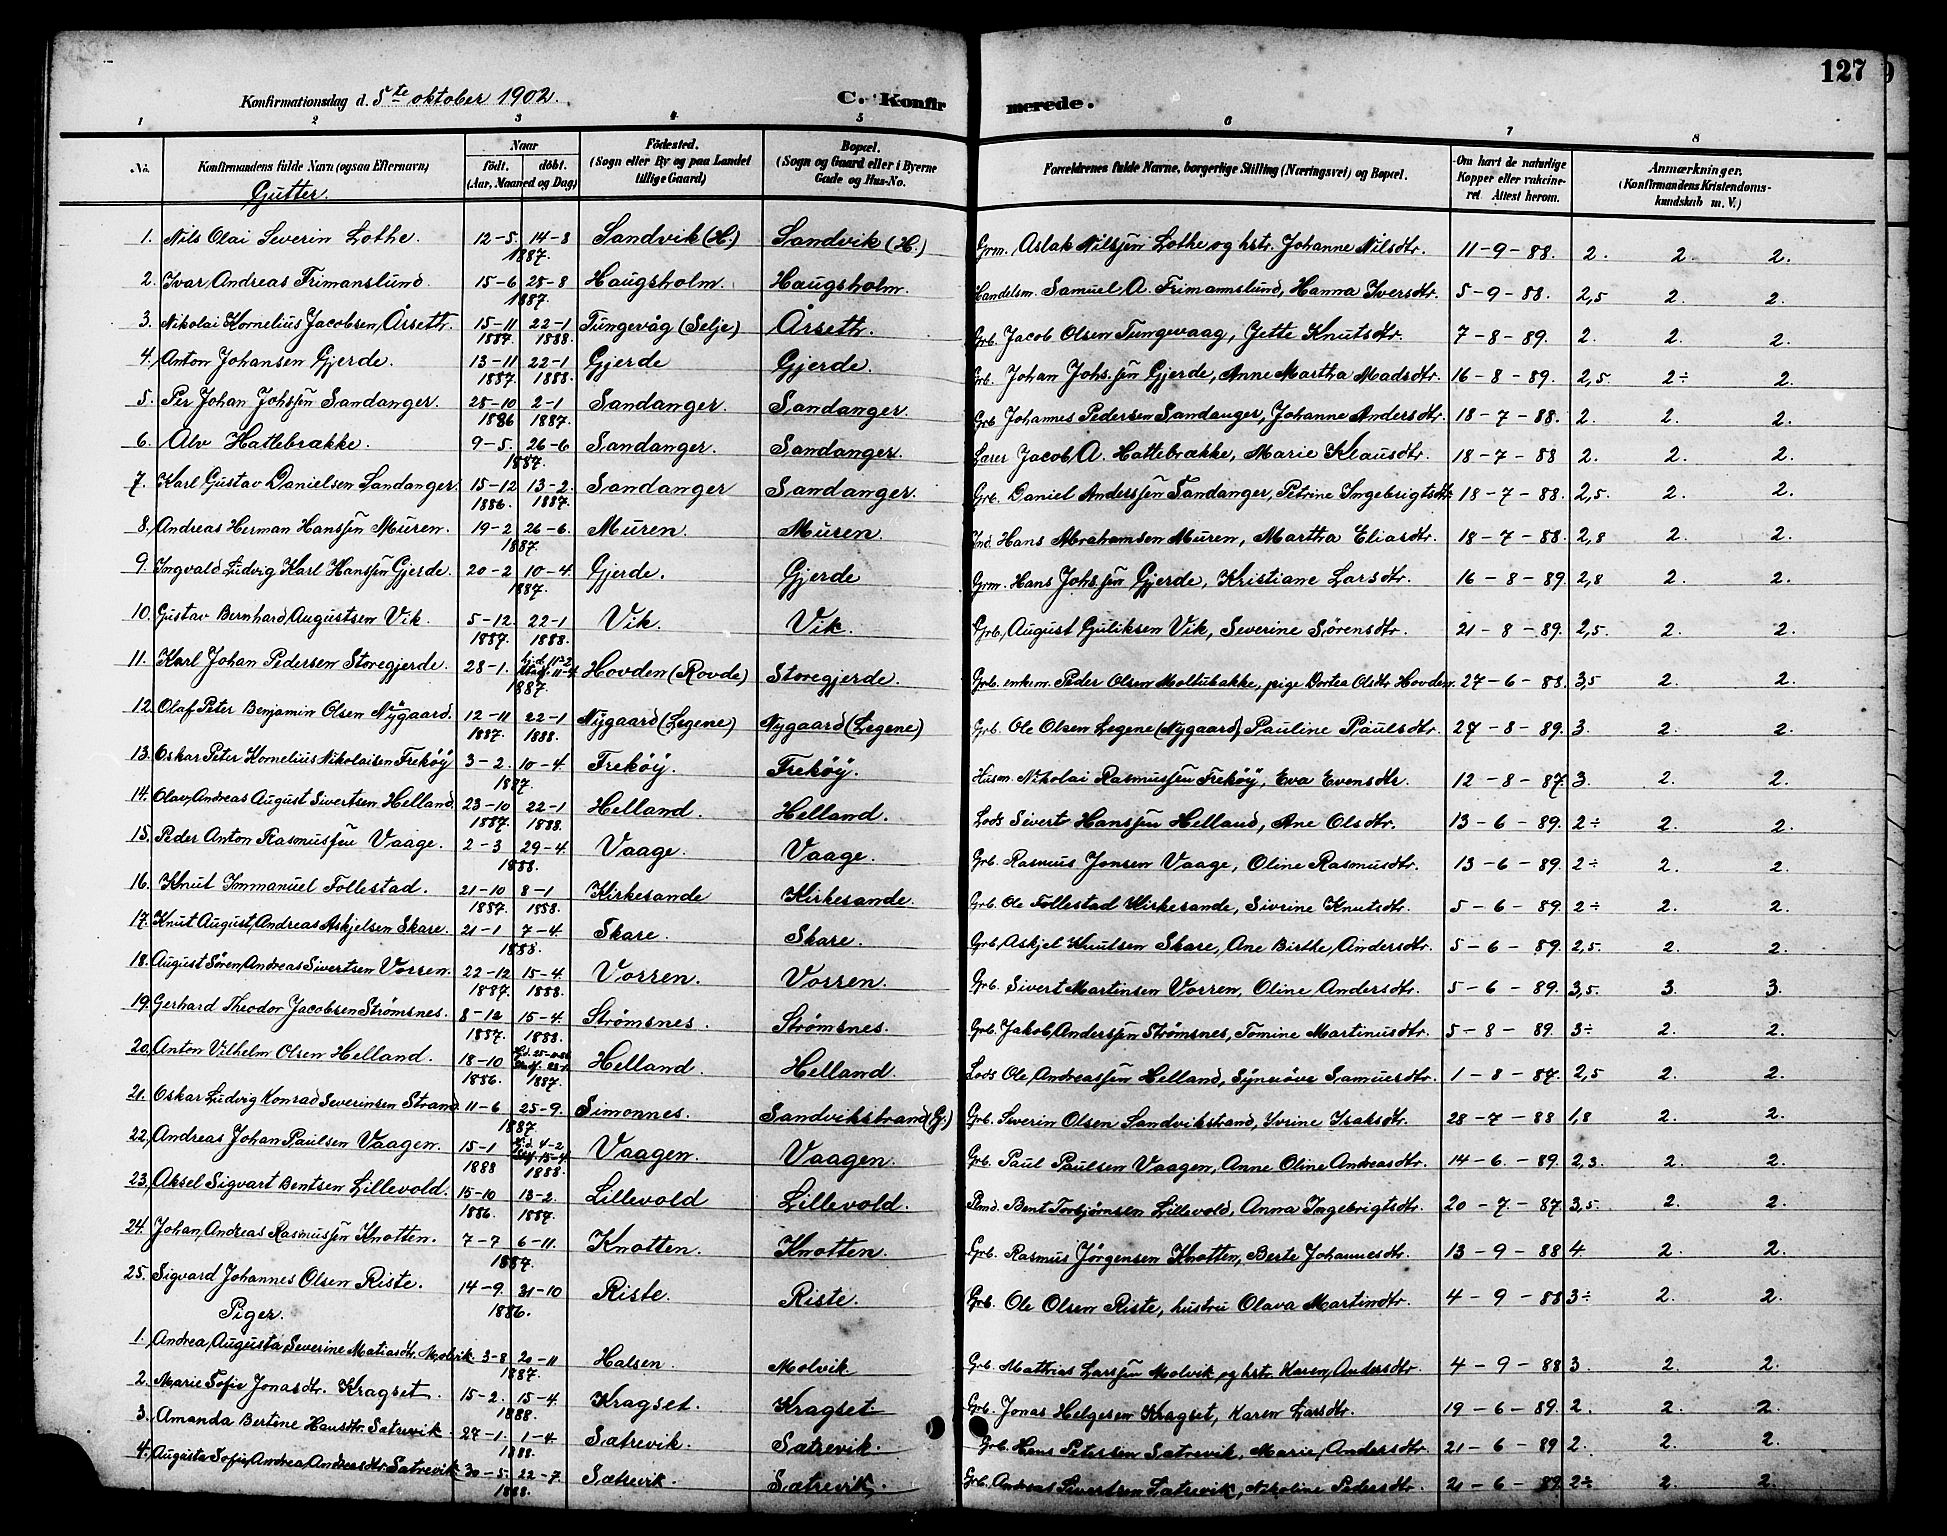 127
Konfirmationsdag d. 5te oktober 1902.
C. Konfirmerede.
1 2 3 4 5 6 7 8
No. Konfirmandens fulde Navn (ogsaa Efternavn) Naar født. døbt. (Aar, Maaned og Dag) Fødested. (Sogn eller By og paa Landet tillige Gaard) Bopæl. (Sogn og Gaard eller i Byerne Gade og Hus-No. Forældrenes fulde Navne, borgerlige Stilling (Næringsvei) og Bopæl. Om havt de naturlige Kopper eller vakcineret Attest herom. Anmærkninger. (Konfirmandens Kristendomskundskab m. V.)
Gutter.
1. Nils Olai Severin Lothe. 12-5. 14-8 1887. Sandvik (H.) Sandvik (H.) Grm. Aslak Nilssen Lothe og hstr. Johanne Nilsdtr. 11-9-88. 2. 2. 2.
2. Ivar Andreas Frimanslund. 15-6 28-8 1887. Haugsholm. Haugsholm. Handelsm. Samuel A. Frimannslund, Hanna Iversdtr. 5-9-88. 2,5 2. 2.
3. Nikolai Kornelius Jacobsen Årsetr. 15-11 1887 22-1 1888. Tungevåg (Selje) Årsetr. Grb. Jacob Olsen Tungevaag, Jette Knutsdtr. 7-8-89. 2. 2. 2.
4. Anton Johansen Gjerde. 13-11 1887 22-1 1888. Gjerde Gjerde. Grb. Johan Johs.sen Gjerde, Anne Martha Madsdtr. 16-8-89. 2,5. 2÷ 2.
5. Per Johan Johssen Sandanger. 25-10 1886 2-1 1887. Sandanger. Sandanger. Grb. Johannes Pedersen Sandanger, Johanne Andersdtr. 18-7-88. 2. 2. 2.
6. Alv Hattebrække. 9-5. 26-6 1887. Sandanger. Sandanger. Lærer Jacob A. Hattebrække, Marie Klausdtr. 18-7-88 2. 2. 2.
7. Karl Gustav Danielsen Sandanger. 15-12 1886. 13-2. 1887. Sandanger Sandanger. Grb. Daniel Anderssen Sandanger, Petrine Ingebrigtsdtr. 18-7-88. 2,5. 2. 2.
8. Andreas Herman Hanssen Muren. 19-2 26-6. 1887. Muren. Muren. Ind. Hans Abrahamsen Muren, Martha Eliasdtr. 18-7-88. 2,8 2. 2.
9. Ingvald Ludvig Karl Hanssen Gjerde. 20-2 10-4. 1887. Gjerde. Gjerde Grm. Hans Johs.sen Gjerde, Kristiane Larsdtr. 16-8-89. 2,8 2. 2.
10. Gustav Bernhard Augustsen Vik. 5-12. 1887. 22-1 1888. Vik. Vik. Grb. August Guliksen Vik, Severine Sørensdtr. 21-8-89. 2,5. 2. 2.
11. Karl Johan Pedersen Storegjerde. 28-1. 11-4 1887. Hovden (Rovde) Storegjerde. Grb. enkem. Peder Olsen Moltubakke, pige Dortea Olsdtr Hovden. 27-6-88. 3,5 2. 2.
12. Olaf Peter Benjamin Olsen Nygaard. 12-11 1887. 22-1 1888. Nygaard (Legene) Nygaard (Legene) Grb. Ole Olsen Legene (Nygaard), Pauline Paulsdtr. 27-8-89. 3. 2. 2.
13. Oskar Peter Kornelius Nikolaisen Frekøy 3-2. 10-4. 1887. Frekøy. Frekøy. Husm. Nikolai Rasmussen Frekøy, Eva Evensdtr. 12-8-87. 3. 2. 2.
14. Olav Andreas August Sivertsen Helland. 23-10 1887. 22-1 1888. Helland. Helland. Lods Sivert Hanssen Helland, Ane Olsdtr. 13-6-89. 2÷ 2. 2.
15. Peder Anton Rasmussen Vaage. 2-3 29-4 1888. Vaage. Vaage. Grb. Rasmus Jonsen Vaage, Oline Rasmusdtr. 13-6-89. 2÷ 2. 2.
16. Knut Immanuel Follestad. 21-10 1887. 8-1 1888. Kirkesande Kirkesande. Grb. Ole Follestad Kirkesande, Sivrine Knutsdtr. 5-6-89. 2÷ 2. 2.
17. Knut August Andreas Askjelsen Skare. 21-1 7-4. 1888. Skare. Skare. Grb. Askjel Knutsen Skare, Ane Birthe Andersdtr. 5-6-89. 2,5. 2. 2.
18. August Søren Andreas Sivertsen Vorren. 22-12 1887. 15-4. 1888. Vorren. Vorren. Grb. Sivert Martinsen Vorren, Oline Andersdtr. 5-6-89. 3,5. 3. 3.
19. Gerhard Theodor Jacobsen Strømsnes. 8-12 1887. 15-4. 1888. Strømsnes. Strømsnes. Grb. Jakob Anderssen Strømsnes, Tomine Martinusdtr. 5-8-89. 3÷ 2. 2.
20. Anton Vilhelm Olsen Helland. 18-10 1886. 1887. Helland. Helland. Lods Ole Andreassen Helland, Synnøve Samuesdtr. 1-8-87. 2,5 2. 2.
21. Oskar Ludvig Konrad Severinsen Strand. 11-6 25-9. 1887. Simonnes. Sandvikstrand (G.) Grb. Severin Olsen Sandvikstrand, Ivrine Isaksdtr. 28-7-88 1,8 2. 2.
22. Andreas Johan Paulsen Vaagen. 15-1 1888 Hjd. 4-2 15-4. 1888. Vaagen. Vaagen. Grb. Paul Paulsen Vaagen, Anne Oline Andreasdtr. 14-6-89. 2,3. 2. 2.
23. Aksel Sigvart Bentsen Lillevold. 15-10 1886. 13-2. 1887. Lillevold Lillevold. Plmd. Bent Torbjørnsen Lillevold, Anna Ingebrigtsdtr. 20-7-87. 3,5. 2. 2.
24. Johan Andreas Rasmussen Knotten. 7-7 6-11. 1887. Knotten. Knotten. Grb. Rasmus Jørgensen Knotten, Berte Johannesdtr. 13-9-88 4 2. 2.
25. Sigvard Johannes Olsen Riste. 14-9. 31-10 1886. Riste. Riste. Grb. Ole Olsen Riste, hustru Olava Martindtr. 4-9-88 3÷ 2. 2.
Piger.
1. Andrea Augusta Severine Matiasdtr. Molvik 3-8 20-11 1887. Halsen. Molvik Grb. Mathias Larssen Molvik, og hstr. Karen Andersdtr. 4-9-88 3. 2. 2.
2. Marie Sofie Jonasdtr. Kragset. 15-2. 15-4. 1888. Kragset. Kragset Grb. Jonas Helgesen Kragset, Karen Larsdtr. 19-6-89. 2. 2. 2.
3. Amanda Bertine Hansdtr. Satrevik 27-1. 1-4. 1888. Satrevik. Sætrevik. Grb. Hans Petersen Satrevik, Marie Andersdtr. 21-6-89 2. 2. 2.
4. Augusta Sofie Andrea Andreasdtr. Satrevik 30-5. 22-7. 1888. Sætrevik. Sætrevik. Grb. Andreas Sivertsen Satrevik, Nikoline Pedersdtr. 21-6-89. 2÷ 2. 2.